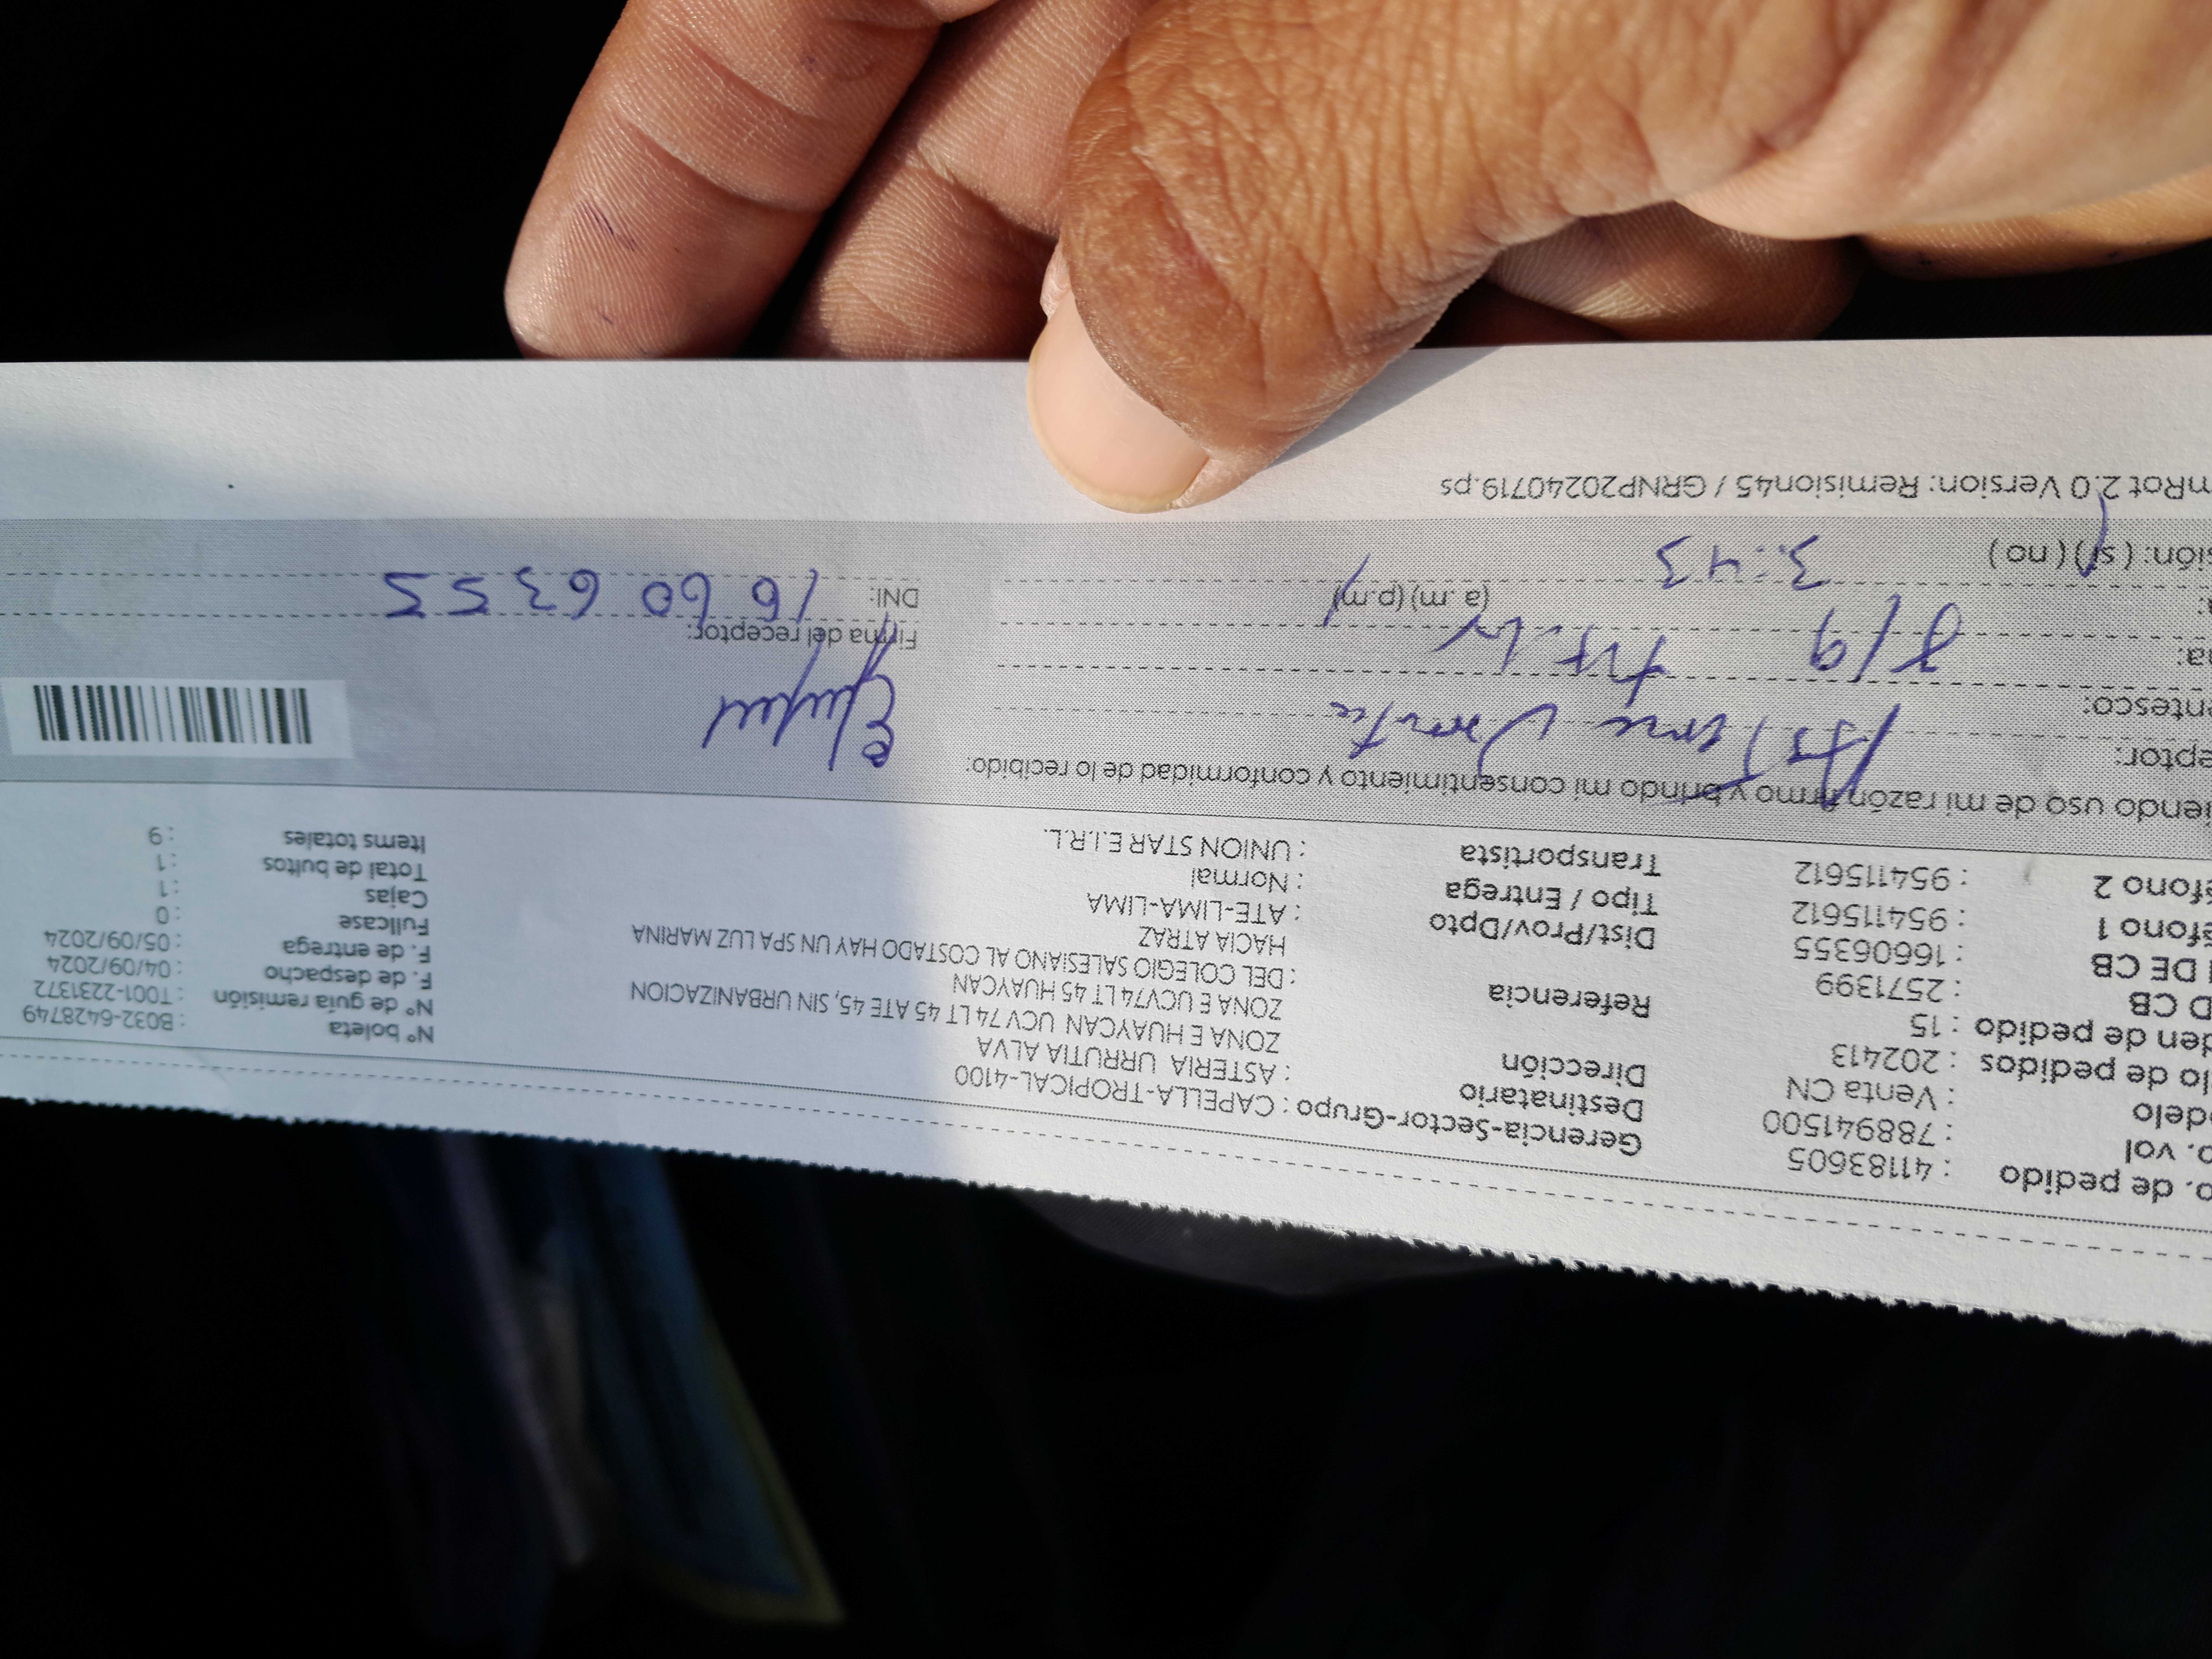 o. de pedido : 41183605
o. vol : 788941500
delo : Venta CN
lo de pedidos : 202413
den de pedido : 15
D CB : 2571399
I DE CB : 16606355
éfono 1 : 954115612
éfono 2 : 954115612
Gerencia-Sector-Grupo : CAPELLA-TROPICAL-4100
Destinatario : ASTERIA URRUTIA ALVA
Dirección ZONA E HUAYCAN UCV 74 LT 45 ATE 45, SIN URBANIZACION
ZONA E UCV74 LT 45 HUAYCAN
Referencia : DEL COLEGIO SALESIANO AL COSTADO HAY UN SPA LUZ MARINA
HACIA ATRAZ
Dist/Prov/Dpto : ATE-LIMA-LIMA
Tipo / Entrega : Normal
Transportista : UNION STAR E.I.R.L.
N° boleta : B032-6428749
N° de guía remisión : T001-2231372
F. de despacho : 04/09/2024
F. de entrega : 05/09/2024
Fullcase : 0
Cajas : 1
Total de bultos : 1
Items totales : 9
iendo uso de mi razón firmo y brindo mi consentimiento y conformidad de lo recibido:
eptor:
entesco:
na: 8/9
a: 3:43 (a.m) (p.m)
isión: ( si ) ( no )
Firma del receptor:
DNI: 16606355
nRot 2.0 Version: Remision45 / GRNP20240719.ps